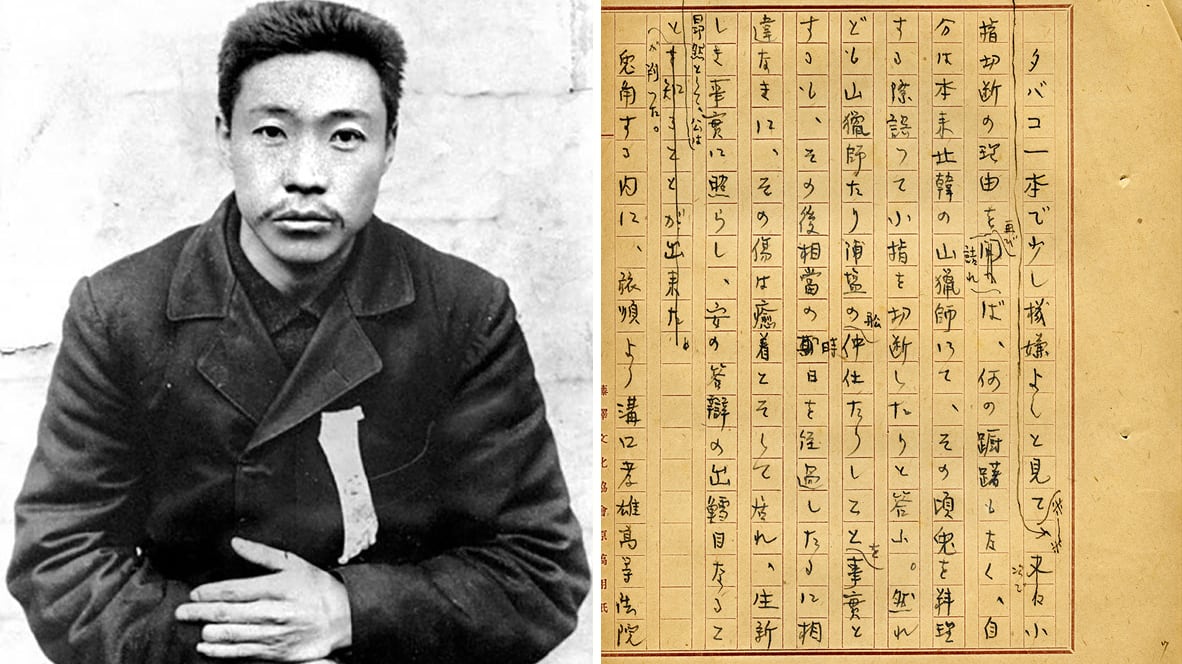 タバコ一本で少し機嫌よしと見て 小
指切断の理由を聞けば、何の躊躇もなく、自
再び
詰れ
分は本来北韓の山獵師にて、その頃兎を料理
する際誤つて小指を切断したりと答ふ。然れ
ども山獵師たり浦塩の仲仕たりしことを事實と
船
するも、その後相當の時日を径過したるに相
違なきに、その傷は癒着こそして居れ、生新
しき事實に照らし、安の答辯の出鱈目なるこ
とを知ることが出来た。
が判つた。
兎角する内に、旅順より溝口孝雄高等法院
藤澤文化協會原稿用紙